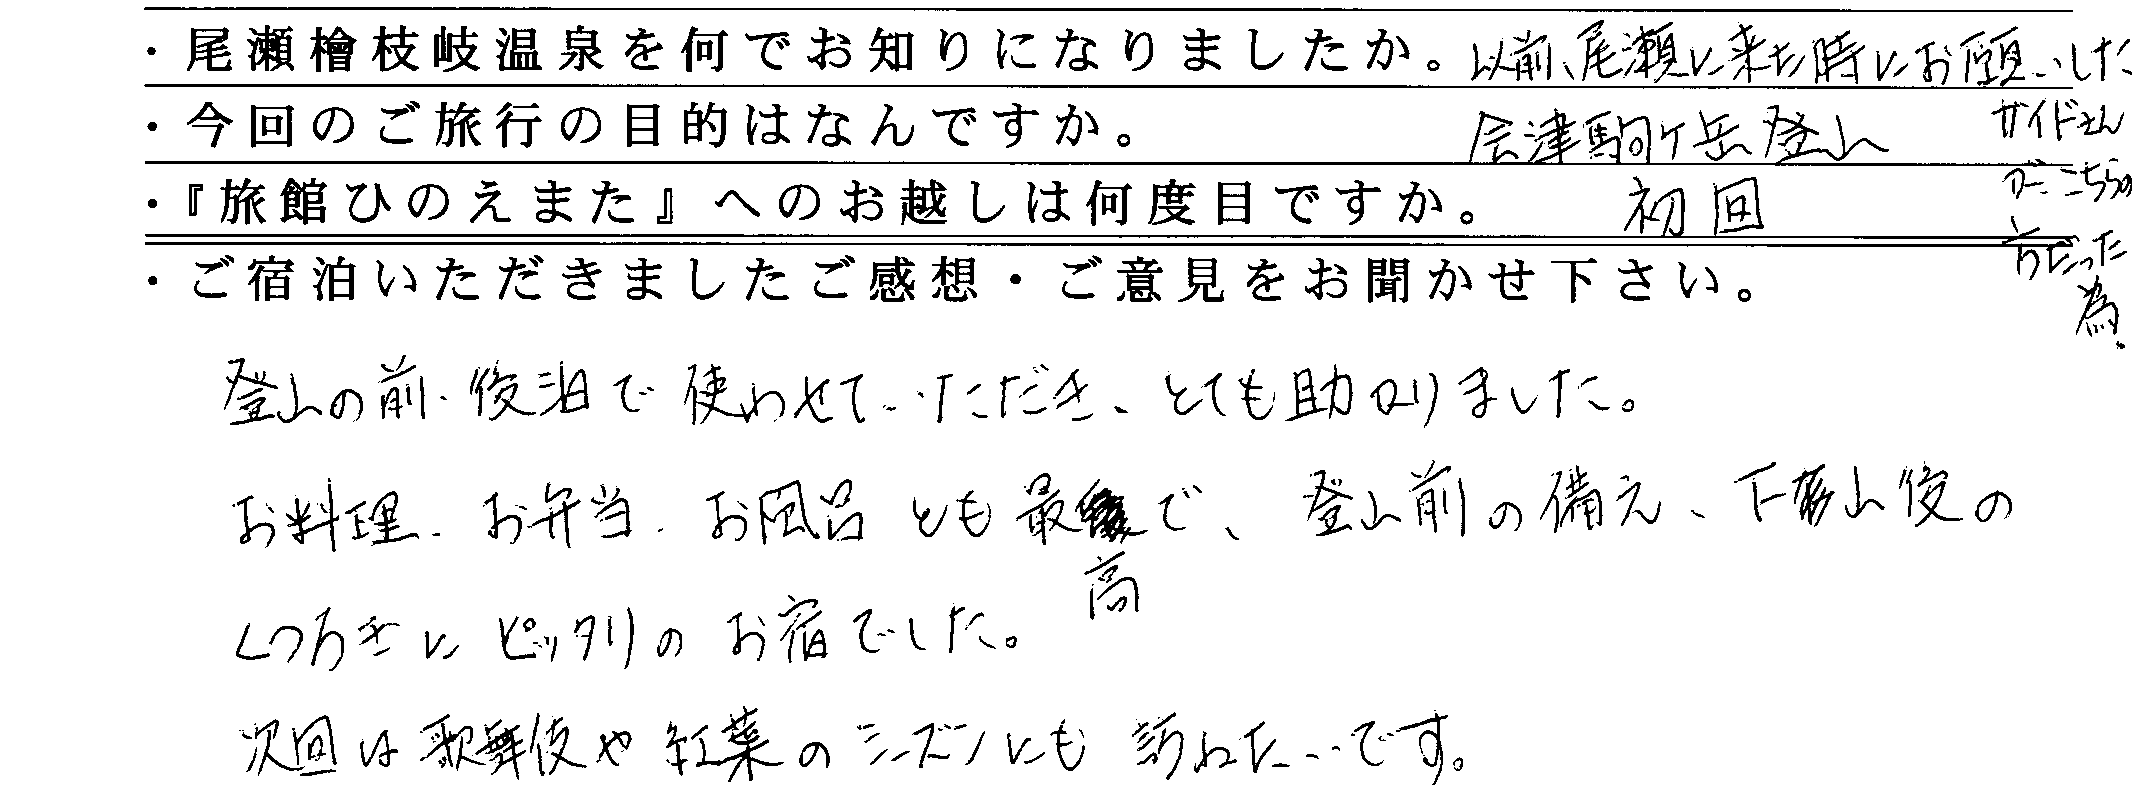 ・尾瀬檜枝岐温泉を何でお知りになりましたか。以前、尾瀬に来た時にお願いした
ガイドさん
がこちらの
方だった
為.
・今回のご旅行の目的はなんですか。 会津駒ヶ岳登山
・『旅館ひのえまた』へのお越しは何度目ですか。 初回
・ご宿泊いただきましたご感想・ご意見をお聞かせ下さい。
登山の前・後泊で使わせていただき、とても助かりました。
お料理.お弁当.お風呂とも最高で、登山前の備え、下山後の
くつろぎにピッタリのお宿でした。
次回は歌舞伎や紅葉のシーズンにも訪ねたいです。